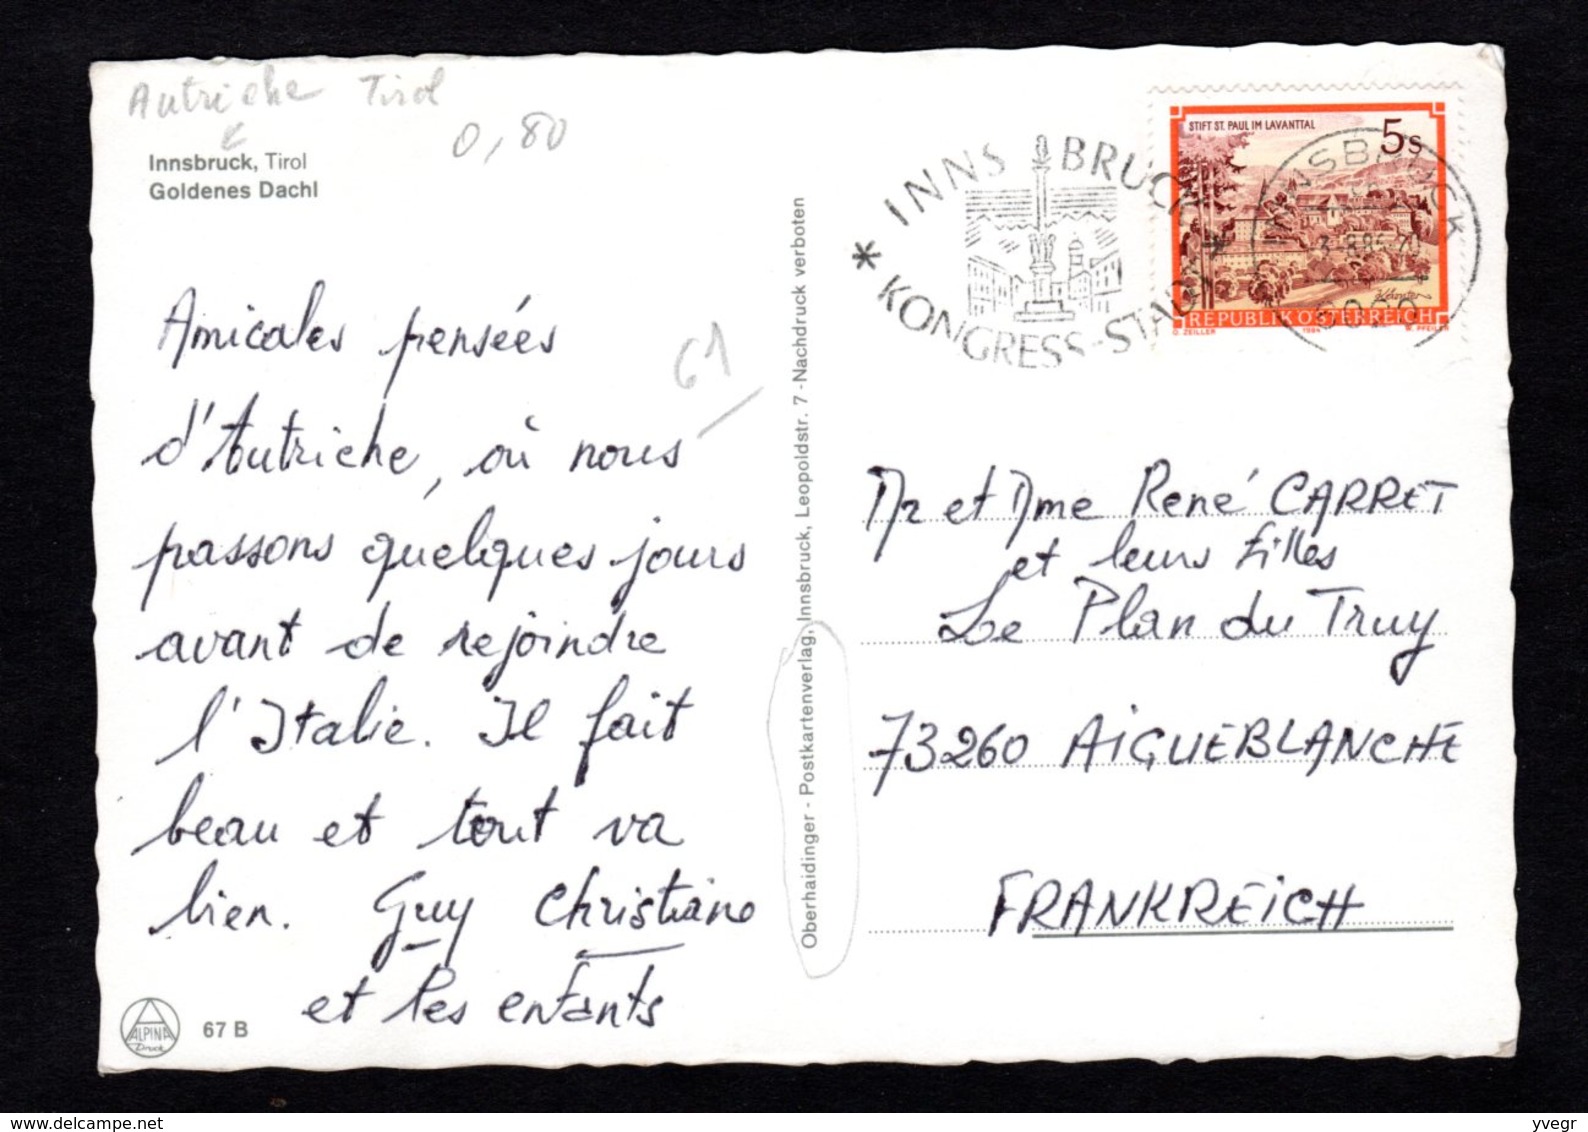 Autriche Tirol
0,80
Innsbruck, Tirol
Goldenes Dachl
Amicales pensées
d'Autriche, où nous
passons quelques jours
avant de rejoindre
l'Italie. Il fait
beau et tout va
bien. Guy Christiane
et les enfants
ALPINA
Druck
67 B
61
Oberhaidinger - Postkartenverlag, Innsbruck, Leopoldstr. 7 - Nachdruck verboten
INNSBRUCK
* KONGRESS-STADT *
STIFT ST. PAUL IM LAVANTTAL
5s
REPUBLIK ÖSTERREICH
O. ZEILLER 1984 W. PFEILER
INNSBRUCK
6020
Mr et Mme René CARRET
et leurs filles
Le Plan du Truy
73260 AIGUEBLANCHE
FRANKREICH
Delcampe.net
yvegr